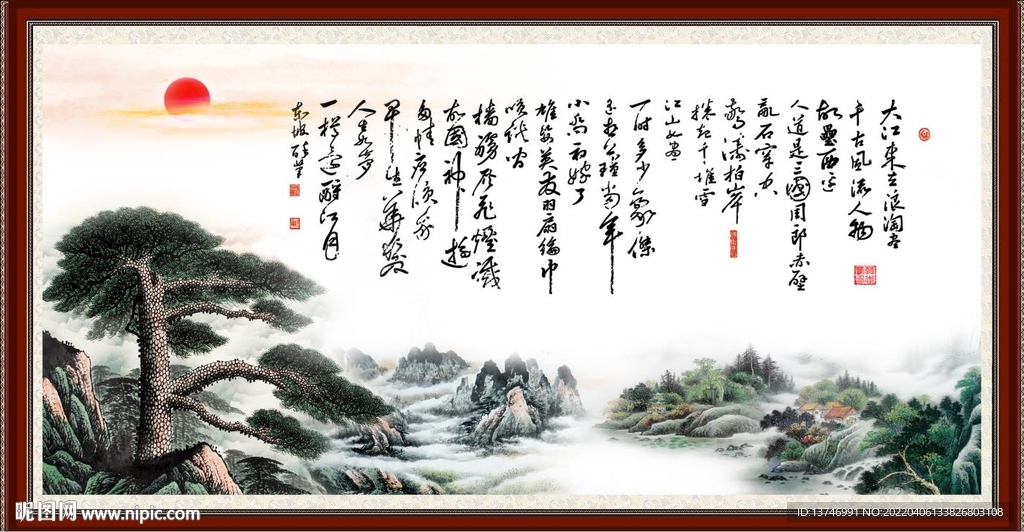 大江东去浪淘尽
千古風流人物
故壘西边
人道是三國周郎赤壁
亂石穿空
驚濤拍岸
捲起千堆雪
江山如畫
一时多少豪傑
遥想公瑾當年
小喬初嫁了
雄姿英发羽扇綸巾
談笑间
檣艣灰飛煙滅
故國神遊
多情应笑我
早生華髮
人生如夢
一樽還酹江月
东坡醉筆
昵图网 www.nipic.com
ID:13746991 NO:20220406133826803108